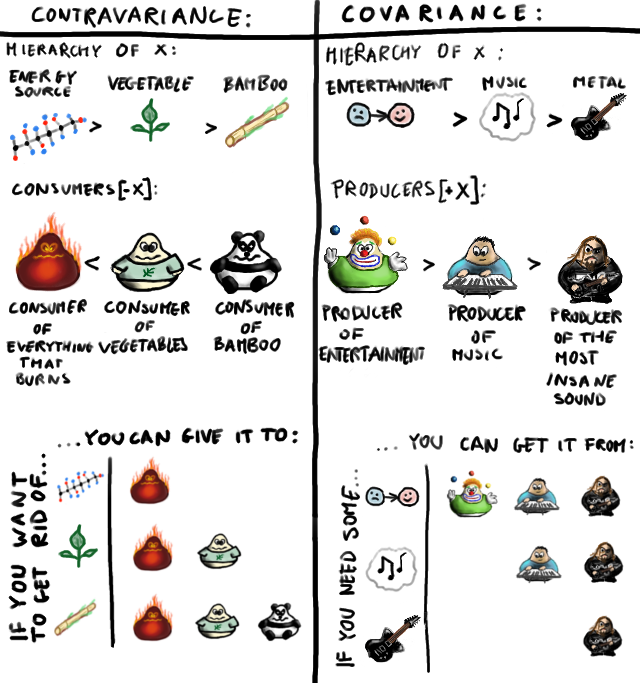 CONTRAVARIANCE:
HIERARCHY OF X:
ENERGY
SOURCE
VEGETABLE
BAMBOO
>
>
CONSUMERS[-X]:
<
<
CONSUMER
OF
EVERYTHING
THAT
BURNS
CONSUMER
OF
VEGETABLES
CONSUMER
OF
BAMBOO
...YOU CAN GIVE IT TO:
IF YOU WANT
TO GET RID OF...
COVARIANCE:
HIERARCHY OF X:
ENTERTAINMENT
MUSIC
METAL
>
>
PRODUCERS[+X]:
>
>
PRODUCER
OF
ENTERTAINMENT
PRODUCER
OF
MUSIC
PRODUCER
OF THE
MOST
INSANE
SOUND
...YOU CAN GET IT FROM:
IF YOU NEED SOME...